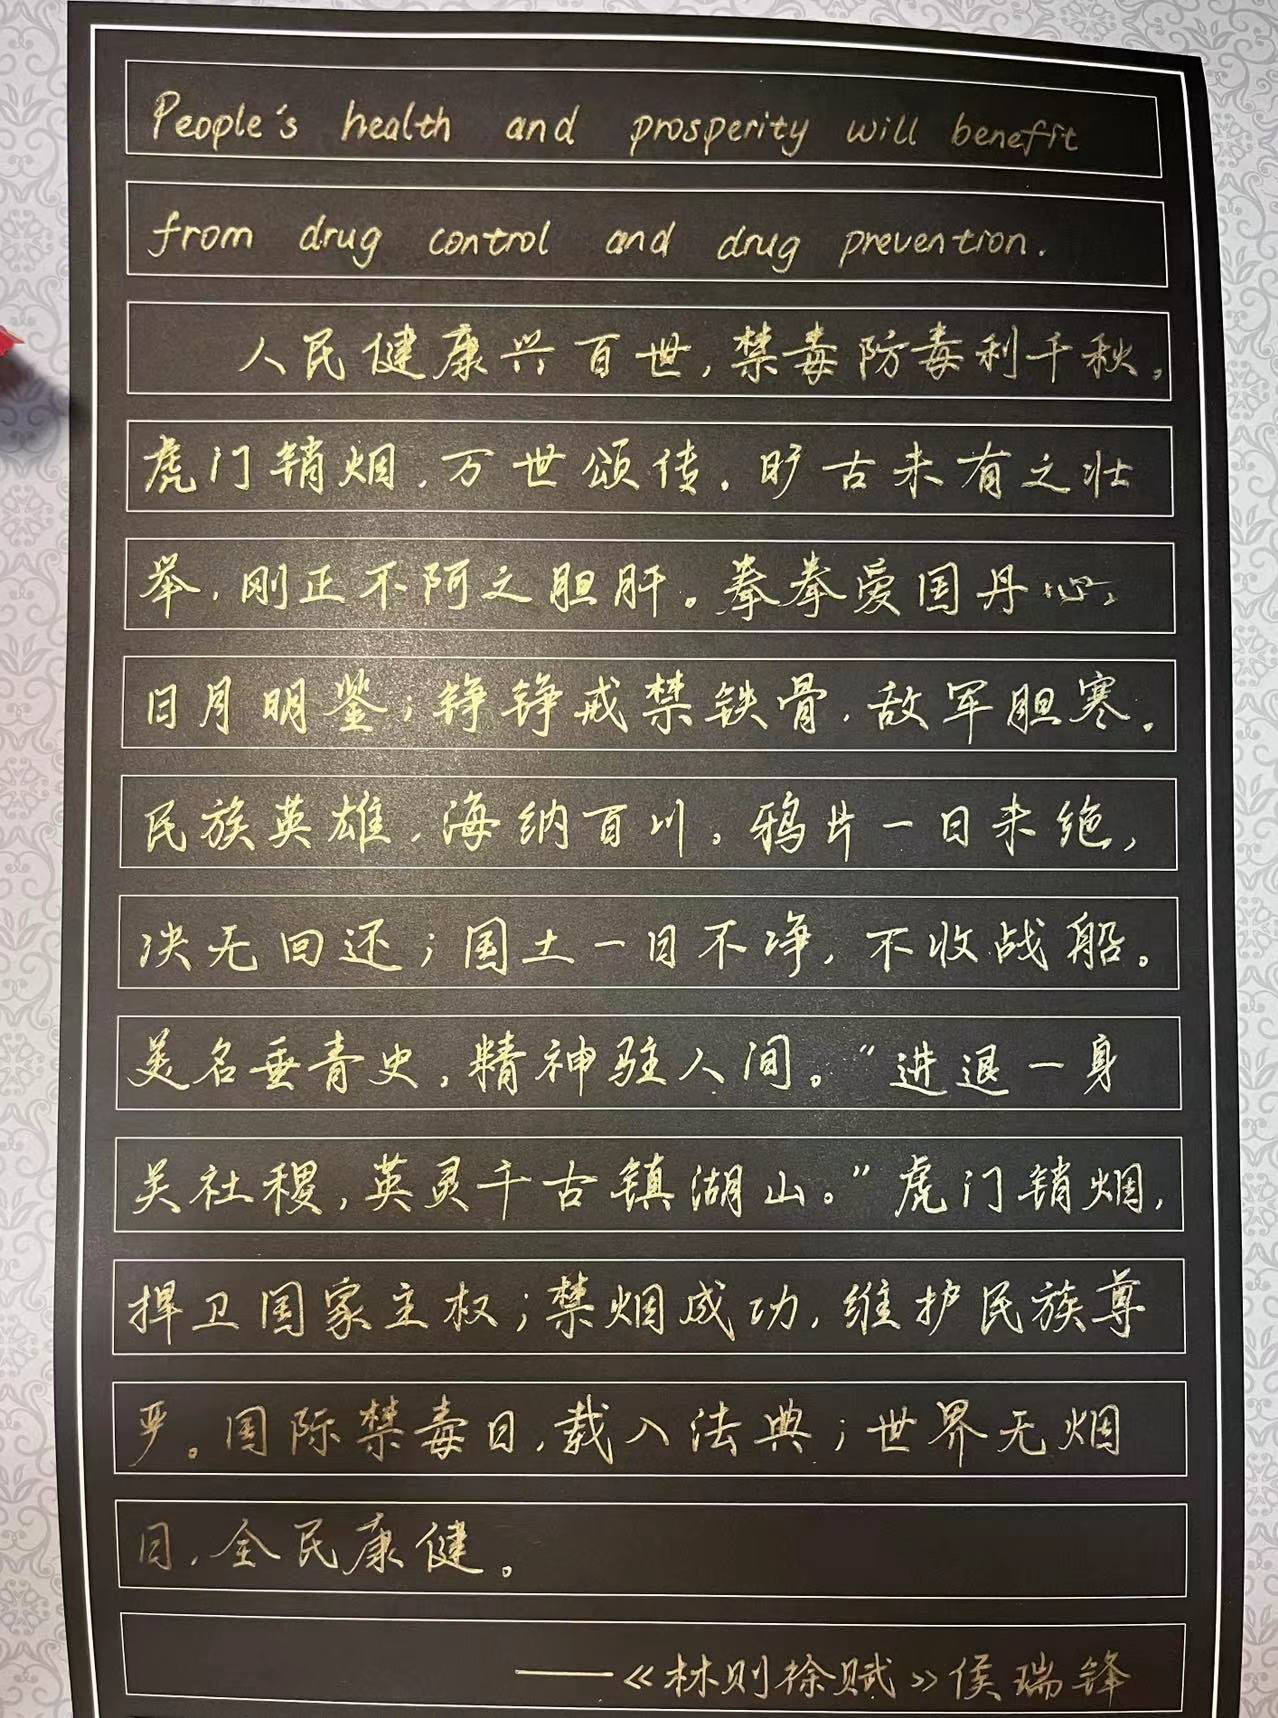 People's health and prosperity will benefit
from drug control and drug prevention.
人民健康兴百世，禁毒防毒利千秋。
虎门销烟，万世颂传。旷古未有之壮
举，刚正不阿之胆肝。拳拳爱国丹心，
日月明鉴；铮铮戒禁铁骨，敌军胆寒。
民族英雄，海纳百川。鸦片一日未绝，
决无回还；国土一日不净，不收战船。
美名垂青史，精神驻人间。“进退一身
关社稷，英灵千古镇湖山。”虎门销烟，
捍卫国家主权；禁烟成功，维护民族尊
严。国际禁毒日，载入法典；世界无烟
日，全民康健。
——《林则徐赋》侯瑞锋